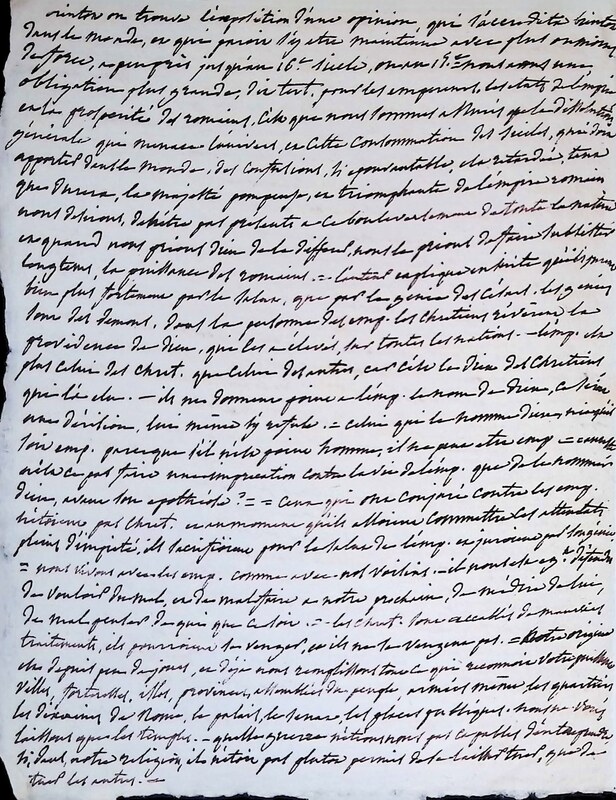 on trouve l'exposition d'une opinion, qui s'accredita bientot
dans le monde, et qui paroit s'y etre maintenue avec plus ou moins
de force, a peu près jusqu'au 16e siecle, ou au 17e = nous avons une
obligation plus grande, dit tert, pour les empereurs, les etats de l'empire
et la prosperité des romains, c'est que nous sommes assurés que la dissolution
générale qui menace l'univers, et cette consommation des siecles, qui doit
apporter dans le monde, des confusions, si epouvantable, est retardée, tant
que durera, la majesté pompeuse, et triomphante de l'empire romain
nous desirons, de n'être pas présents a ce bouleversement de toute la nature
et quand nous prions dieu de la differer, nous le prions de faire subsister
longtems, la puissance des romains. = explique ensuite qu'ils jurent
bien plus fortement par le salut, que par le genie des Césars. les genies
sont des demons, dans la personne des emp. les chretiens réverent la
providence de dieu, qui les a elevés, sur toutes les nations - l'emp. est
plus celui des chret. que celui des autres, car c'est le dieu des chretiens
qui l'a elu. - ils ne donnent point a l'emp. le nom de dieu, ce seroit
une dérision, lui même s'y refuse. = celui qui le nomme dieu,
son emp. parceque s'il n'est point homme, il ne peut etre emp =
n'est ce pas faire une imprecation contre la vie de l'emp. que de le nommer
dieu, avant son apothéose? = = ceux qui ont conjuré contre les emp.
n'etoient pas chret. et au moment qu'ils alloient commettre ces attentats
pleins d'impieté, ils sacrifioient pour le salut de l'emp. et juroient par son génie
= nous vivons avec les emp. comme avec nos voisins - il nous est defendu
de vouloir du mal, et de mal faire a notre prochain, de médire de lui,
de mal penser de qui que ce soit. = les chret. sont accablés de mauvais
traitements, ils pourroient se venger, et ils ne se vengent pas. = Notre origine
est depuis peu de jours, et deja nous remplissons tout ce qui reconnoit votre puissance
villes, forteresses, isles, provinces, assemblées du peuple, armées même les quartiers
de Rome, le palais, le senat, les places publiques. nous ne vous
laissons que les temples. - quelle guerre n'étions nous pas capables d'entreprendre
si, dans notre religion, il n'étoit pas plutot permis de se laisser tuer, que de
tuer les autres. =